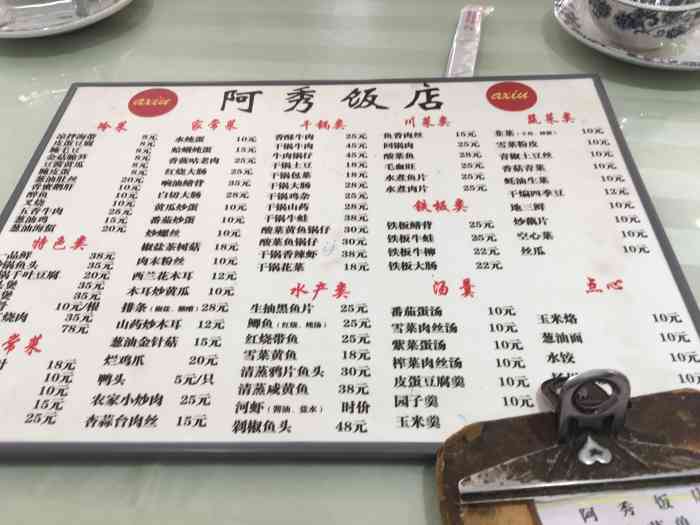 axiu 阿秀饭店 axiu
冷菜
凉拌海带 8元
皮蛋豆腐 8元
毛豆 8元
金菇腌笋 8元
豆酱黄瓜 8元
皮蛋 8元
葱油肚丝 20元
香蜜鹅肝 10元
醉鱼 10元
叉烧 10元
五香牛肉 25元
葱油鸡 15元
葱油海蜇 20元
特色类
一品鲜 38元
锅鱼头 35元
锅千叶豆腐 20元
煲 35元
煲 35元
10元/根
烧肉 35元
78元
常菜
18元
10元
10元
15元
25元
家常菜
水炖蛋 10元
蛤蜊炖蛋 15元
香菇咕老肉 25元
红烧大肠 25元
响油鳝背 35元
白切大肠 28元
番茄炒蛋 10元
炒螺丝 10元
椒盐茶树菇 18元
肉末粉丝 10元
西兰花木耳 12元
木耳炒黄瓜 10元
排条 28元
山药炒木耳 12元
葱油金针菇 15元
烂鸡爪 20元
鸭头 5元/只
农家小炒肉 25元
杏蒜台肉丝 15元
干锅类
香酥牛肉 25元
干锅牛肉 45元
牛肉锅仔 45元
干锅土豆 18元
干锅包菜 18元
干锅大肠 28元
干锅鸡杂 25元
干锅山药 28元
干锅牛蛙 38元
酸菜黄鱼锅仔 30元
干锅香辣虾 38元
干锅花菜 18元
水产类
生抽黑鱼片 25元
鲫鱼(红烧、烤汤) 25元
红烧带鱼 25元
雪菜黄鱼 18元
清蒸鸦片鱼头 30元
清蒸咸黄鱼 38元
河虾(酱油、盐水) 时价
剁椒鱼头 48元
川菜类
鱼香肉丝 15元
回锅肉 25元
酸菜鱼 28元
毛血旺 28元
水煮鱼片 25元
水煮肉片 25元
铁板类
铁板鳝背 25元
铁板牛蛙 25元
铁板牛柳 22元
铁板大肠 22元
汤羹
番茄蛋汤 10元
雪菜肉丝汤 10元
紫菜蛋汤 10元
榨菜肉丝汤 10元
皮蛋豆腐羹 10元
园子羹 10元
玉米羹 10元
蔬菜类
韭菜 10元
雪菜粉皮 10元
青椒土豆丝 10元
香菇青菜 10元
蚝油生菜 10元
干煸四季豆 12元
地三鲜 10元
炒藕片 10元
空心菜 10元
丝瓜 10元
点心
玉米烙 10元
葱油面 10元
水饺 10元
阿秀饭店